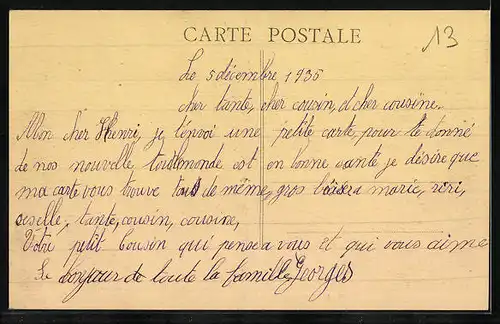 CARTE POSTALE
13
Le 5 décembre 1935
cher tante, cher cousin, et cher cousine.
Mon cher Henri, je t'envoi une petite carte pour te donné
de nos nouvelle, tout le monde est en bonne sante je désire que
ma carte vous trouve tous de même, gros baisers marie, riri,
giselle, tante, cousin, cousine,
Votre petit Cousin qui pense a vous et qui vous aime
Le bonjour de toute la famille, Georges